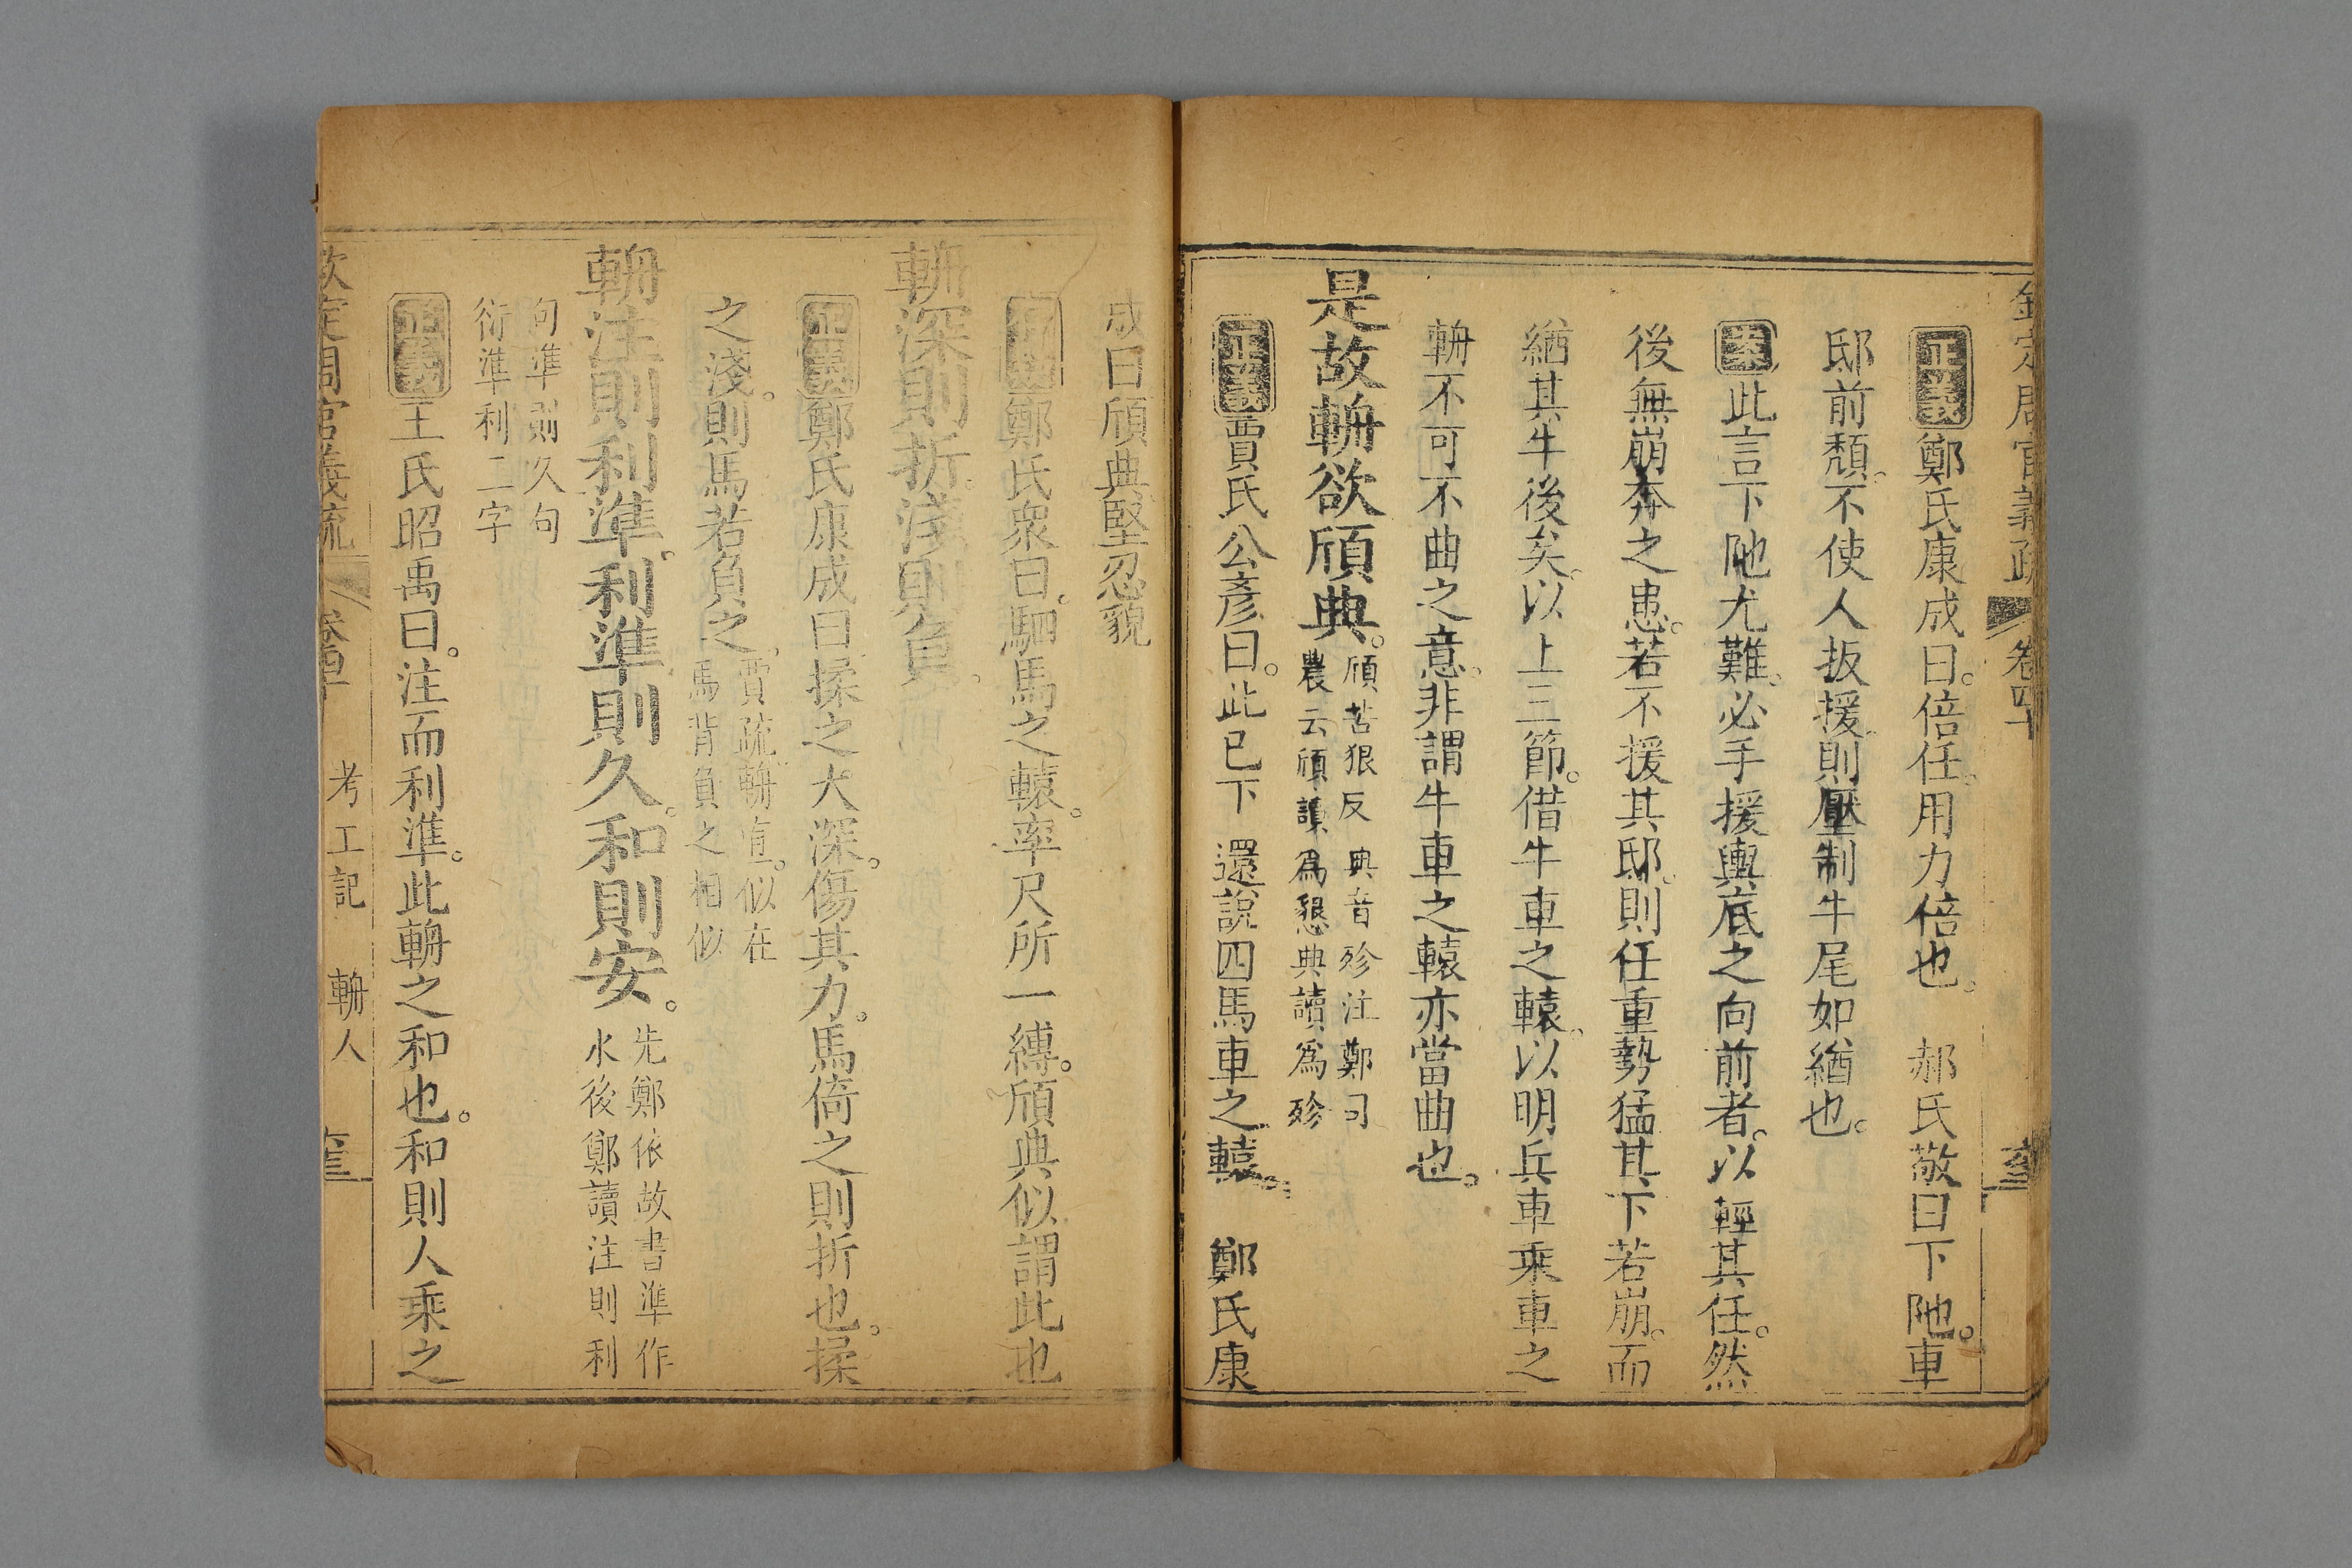 欽定周官義疏 卷四十
正義鄭氏康成曰。倍任。用力倍也。 郝氏敬曰下阤。車
邸前頹。不使人扳援。則壓制牛尾如緧也。
案此言下阤尤難。必手援輿底之向前者。以輕其任。然
後無崩奔之患。若不援其邸。則任重勢猛。其下若崩。而
緧其牛後矣。以上三節。借牛車之轅。以明兵車乘車之
輈不可不曲之意。非謂牛車之轅亦當曲也。
是故輈欲頎典。
頎苦狠反 典音殄注鄭司
農云頎讀爲懇典讀爲殄
正義賈氏公彥曰。此已下還說四馬車之轅。 鄭氏康
成曰頎典堅忍貌
正義鄭氏衆曰。駟馬之轅。率尺所一縛。頎典似謂此也
輈深則折。淺則負。
正義鄭氏康成曰揉之大深。傷其力。馬倚之則折也。揉
之淺。則馬若負之。
賈疏輈直。似在
馬背負之相似
輈注則利準。利準則久。和則安。
先鄭依故書準作
水後鄭讀注則利
句準則久句
衍準利二字
正義王氏昭禹曰。注而利準。此輈之和也。和則人乘之
欽定周官義疏 卷四十 考工記 輈人